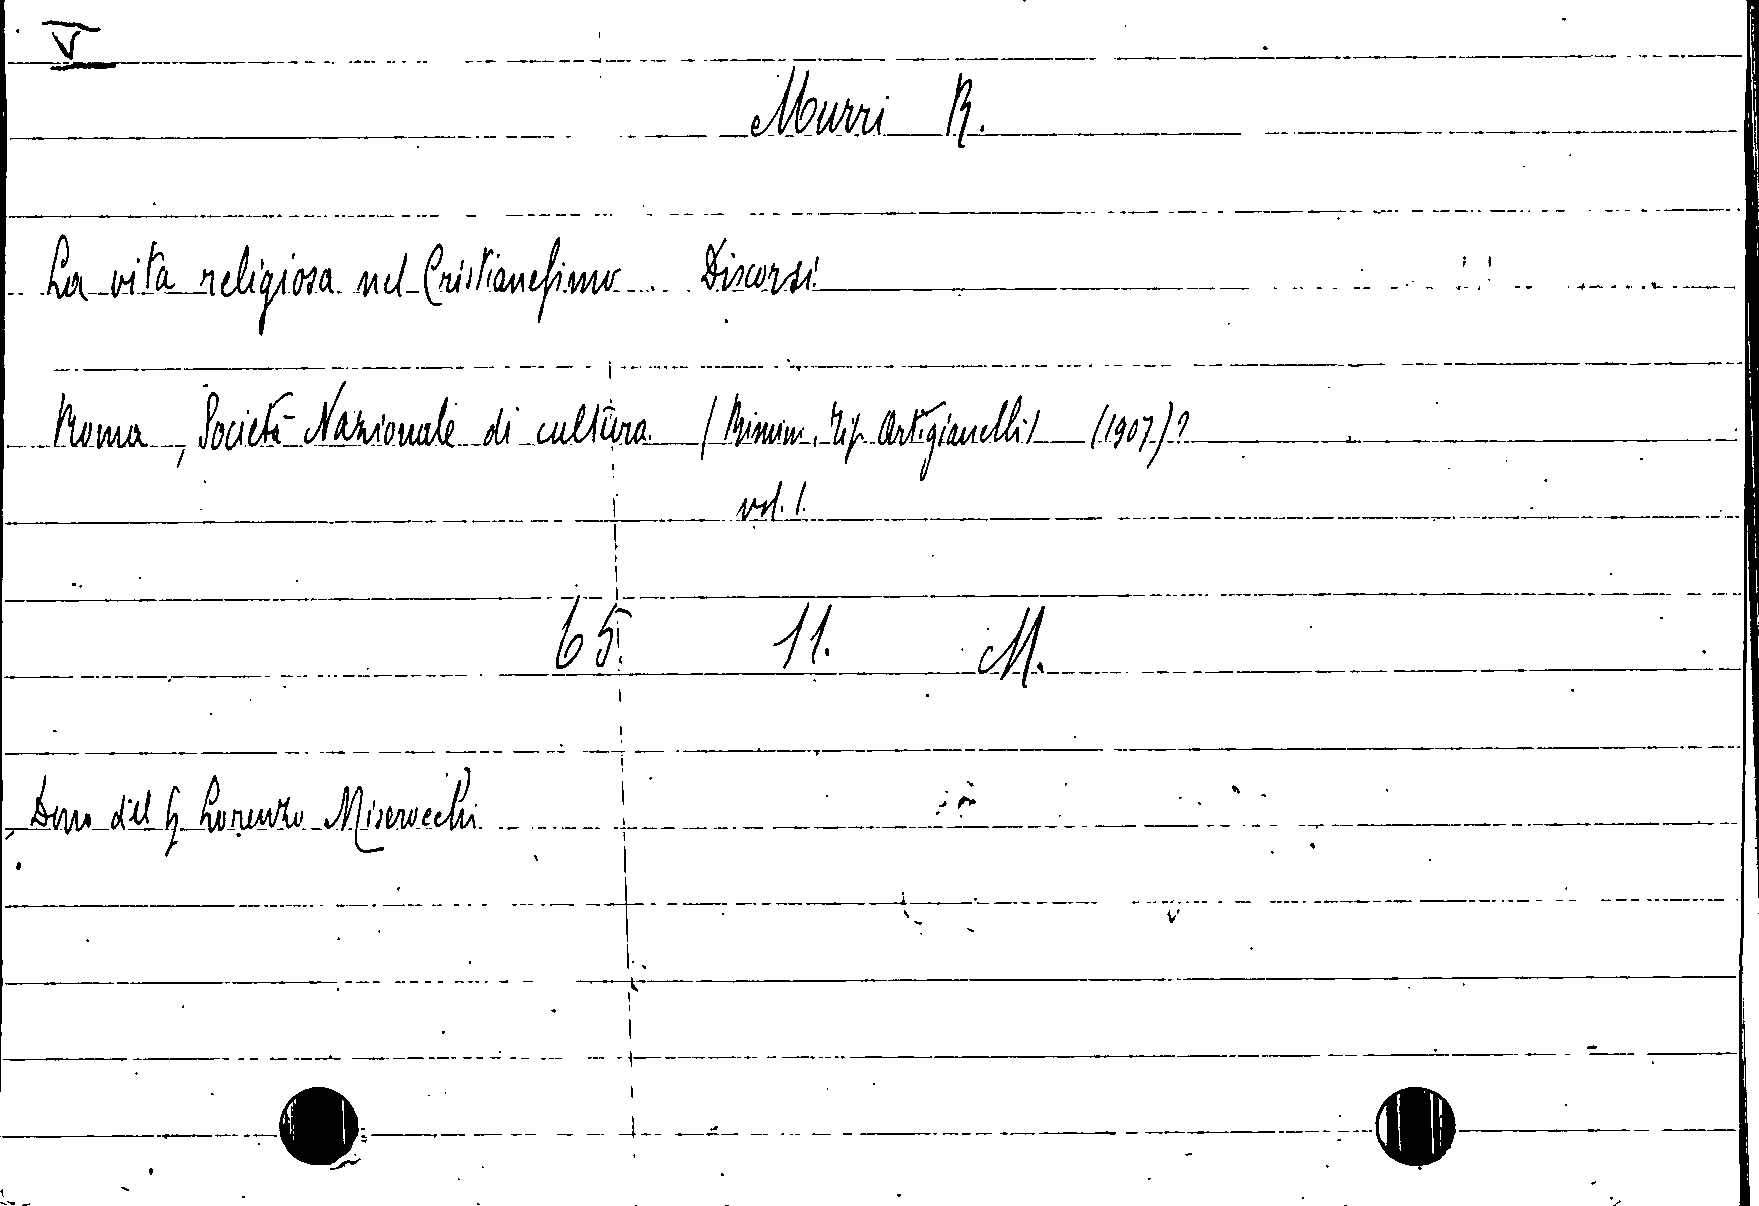 V
Murri R.
La vita religiosa nel Cristianesimo. Discorsi
Roma, Società Nazionale di cultura (Rimini, Tip. Artigianelli) (1907)?
vol. 1.
65. 11. M.
Dono del Lorenzo Miserocchi